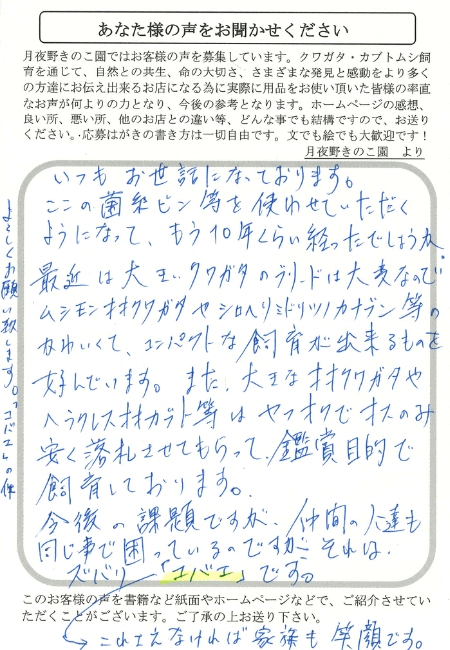 あなた様の声をお聞かせください
月夜野きのこ園ではお客様の声を募集しています。クワガタ・カブトムシ飼
育を通じて、自然との共生、命の大切さ、さまざまな発見と感動をより多く
の方達にお伝え出来るお店になる為に実際に用品をお使い頂いた皆様の率直
なお声が何よりの力となり、今後の参考となります。ホームページの感想、
良い所、悪い所、他のお店との違い等、どんな事でも結構ですので、お送り
ください。・応募はがきの書き方は一切自由です。文でも絵でも大歓迎です！
月夜野きのこ園　より
いつもお世話になっております。
ここの菌糸ビン等を使わせていただく
ようになって、もう10年くらい経ったでしょうか。
最近は大王いクワガタのブリードは大変なので
ムシモンオオクワガタやシロヘリミドリツノカナブン等の
かわいくて、コンパクトな飼育が出来るものを
好んでいます。また、大王なオオクワガタや
ヘラクレスオオカブト等はヤフオクでオスのみ
安く落札させてもらって、鑑賞目的で
飼育しております。
今後の課題ですが、仲間の人達も
同じ事で困っているのですが、それは、
ズバリ「コバエ」です。
このお客様の声を書籍など紙面やホームページなどで、ご紹介させてい
ただくことがございます。ご了承の上お送り下さい。
これさえなければ家族も笑顔です。
よろしくお願い致します。「コバエ」の件